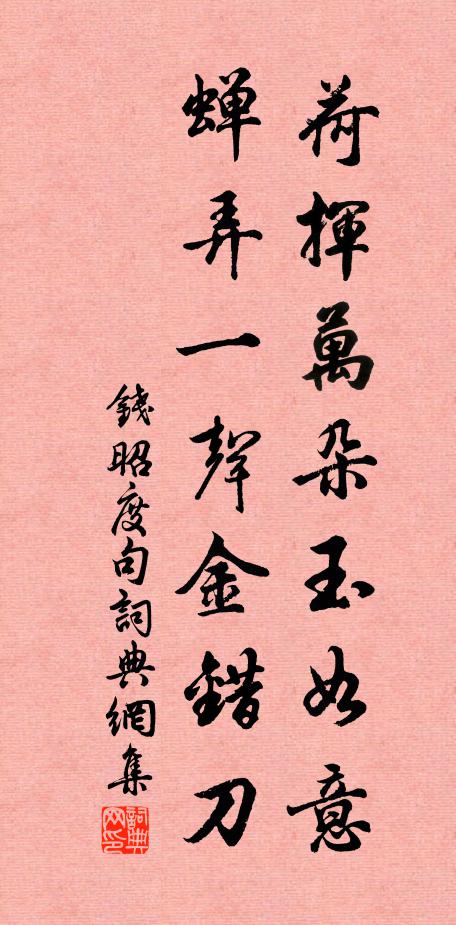 荷揮萬朵玉如意
蟬弄一聲金錯刀
錢昭度句詞典網集
詞典网印